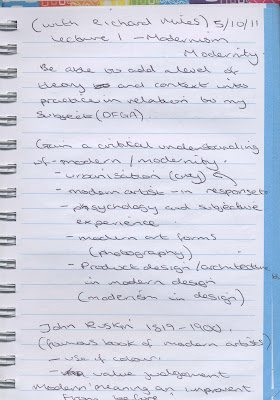 (with Richard Miles) 5/10/11
Lecture 1 - Modernism
Modernity.
Be able to add a level of
theory and context into
practice in relation to my
subject (OFGA)
Gain a critical understanding
of - modern / modernity.
- urbanisation (city)
- modern artist - in response to
- psychology and subjective
experience
- modern art forms
(photography)
- Product design / architecture
in modern design
(modernism in design)
John Ruskin 1819 - 1900.
(famous book of modern artists)
- use of colour.
- value judgement
Modern meaning an improvent
from before